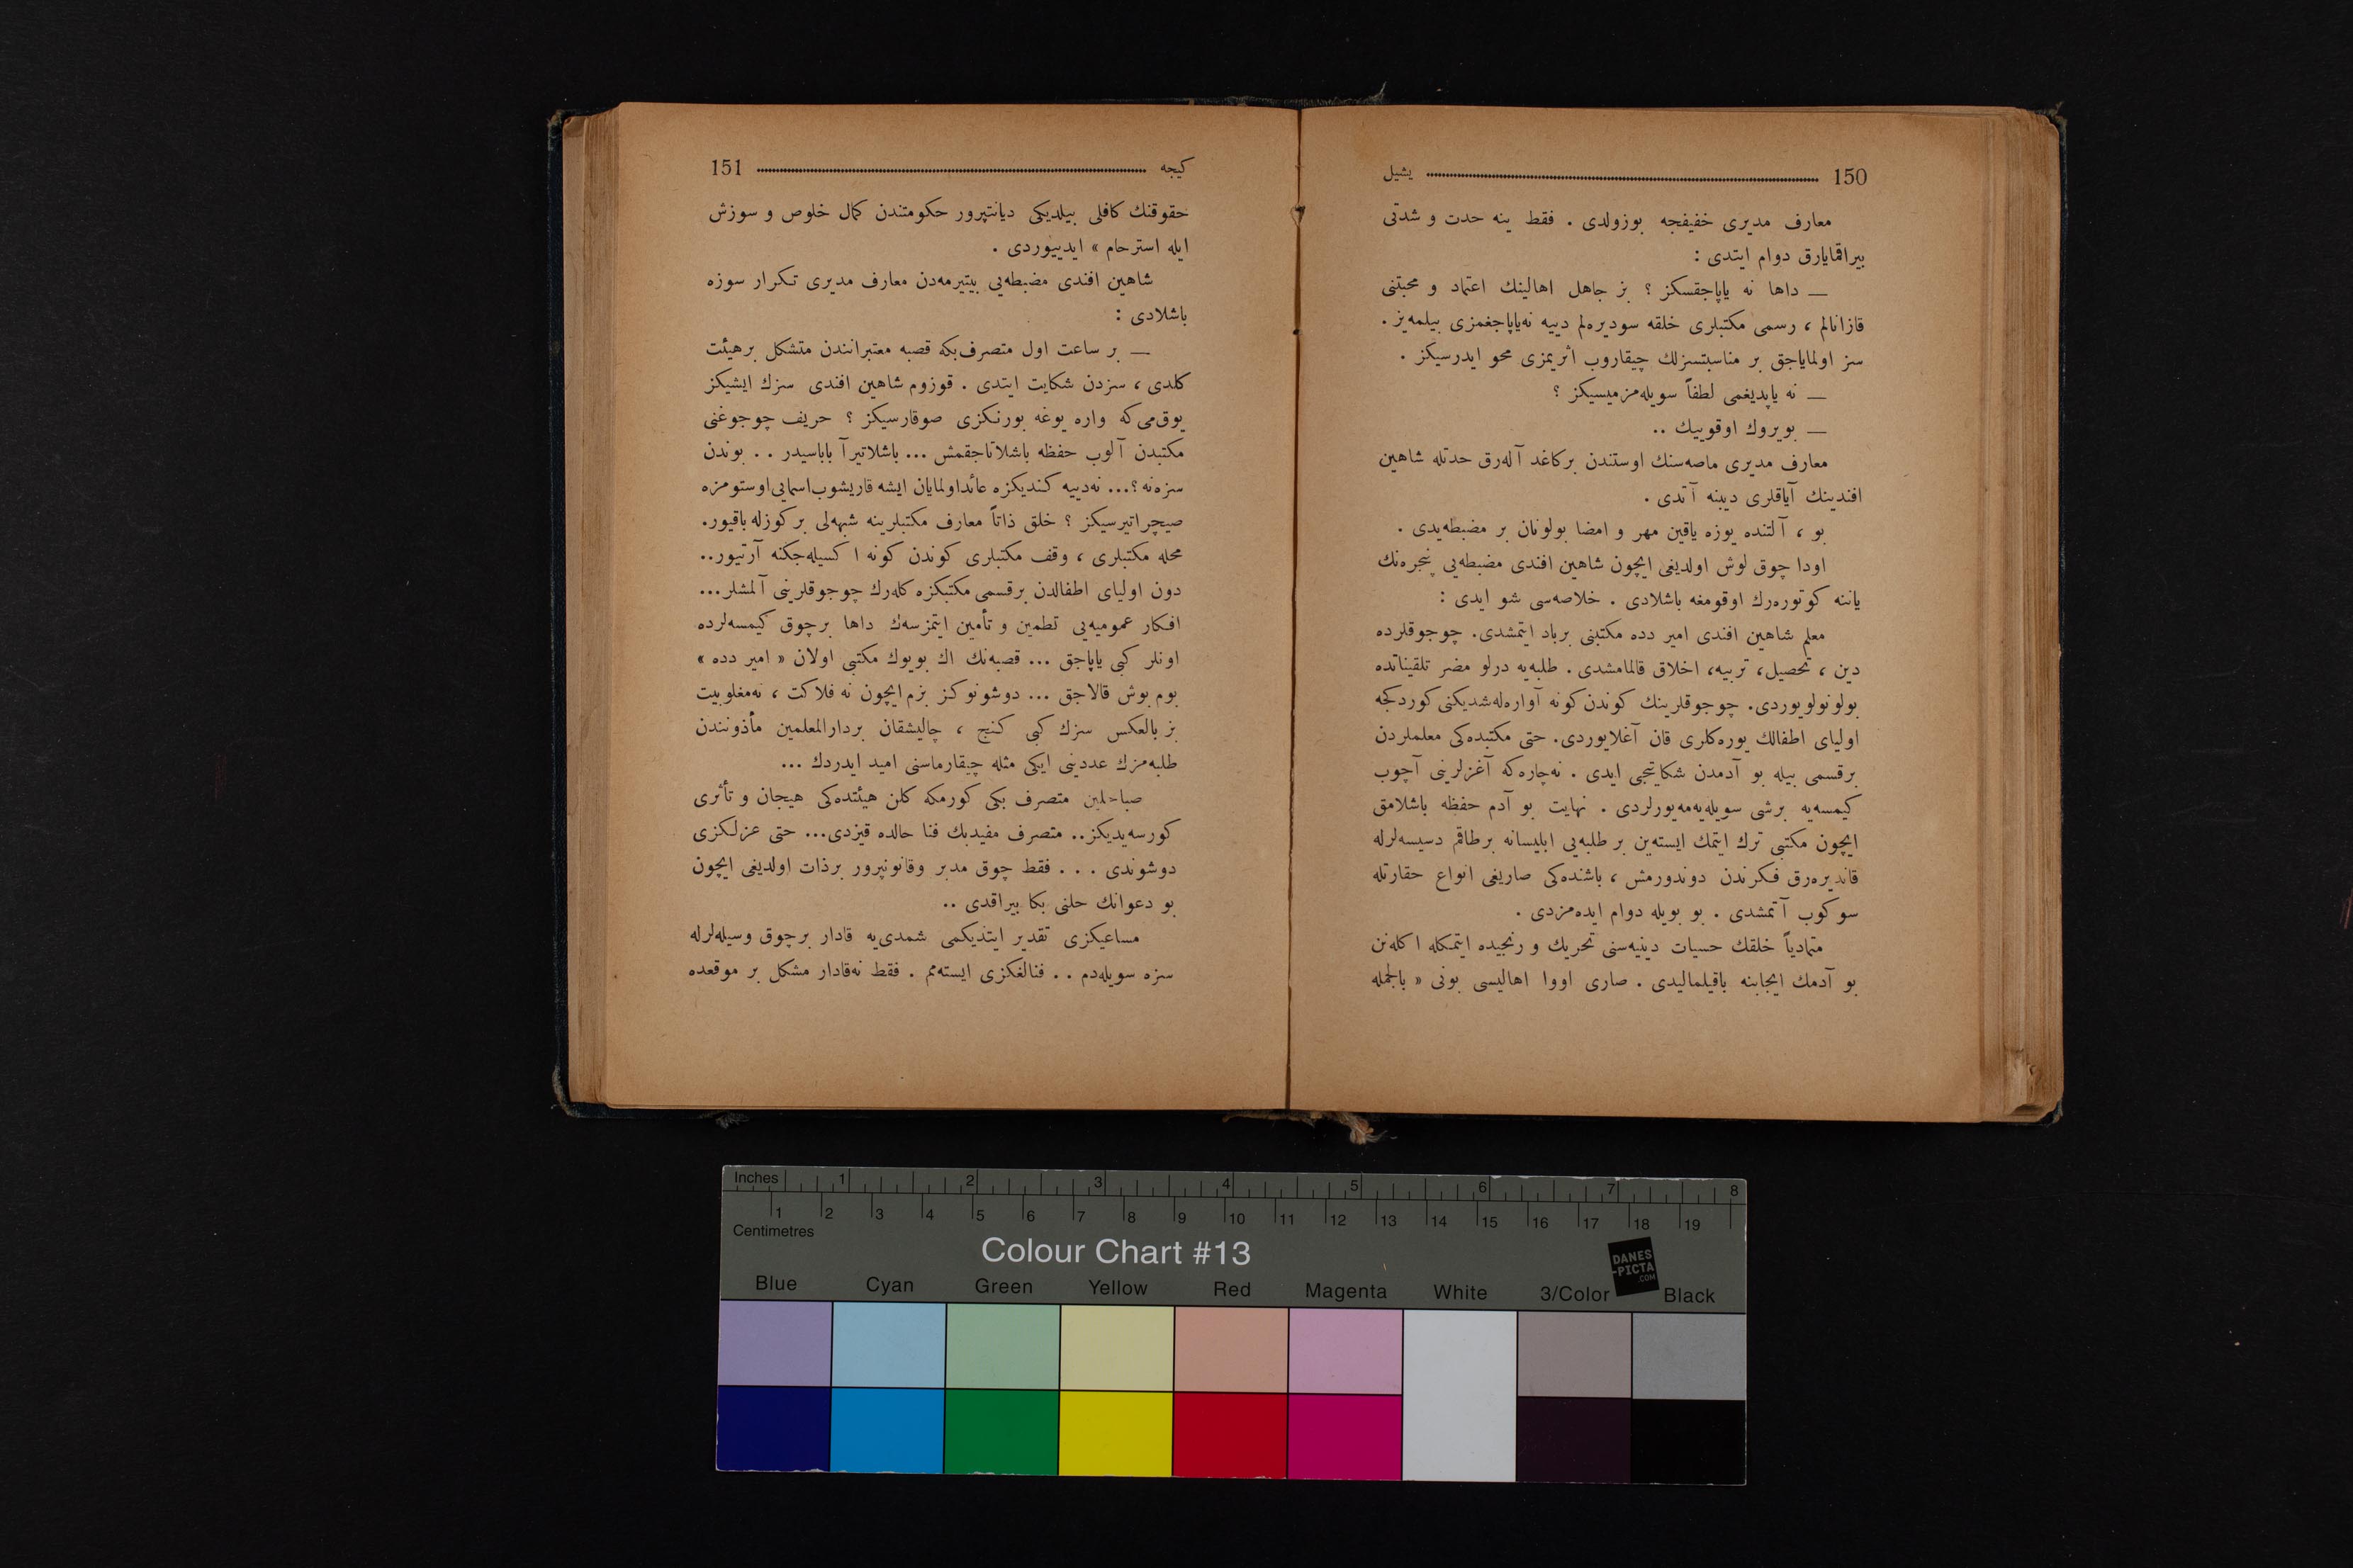 150 يشيل
معارف مديرى خفيفجه بوزولدى . فقط ينه حدت و شدتى
بيراقمايارق دوام ايتدى :
— داها نه ياپاجقسكز ؟ بز جاهل اهالينك اعتماد و محبتنى
قازانالم ، رسمى مكتبلرى خلقه سوديره‌لم دييه نه‌ياپاجغمزى بيلمه‌يز .
سز اولماياجق بر مناسبتسزلك چيقاروب اثريمزى محو ايدرسيكز .
— نه ياپديغمى لطفاً سويله‌مزميسيكز ؟
— بويروك اوقوييك ..
معارف مديرى ماصه‌سنك اوستندن بركاغد آله‌رق حدتله شاهين
افندينك آياقلرى ديبنه آتدى .
بو ، آلتنده يوزه ياقين مهر و امضا بولونان بر مضبطه‌يدى .
اودا چوق لوش اولديغى ايچون شاهين افندى مضبطه‌يى پنجره‌نك
ياننه كوتوره‌رك اوقومغه باشلادى . خلاصه‌سى شو ايدى :
معلم شاهين افندى امير دده مكتبنى برباد ايتمشدى. چوجوقلرده
دين ، تحصيل، تربيه، اخلاق قالمامشدى . طلبه‌يه درلو مضر تلقيناتده
بولونولويوردى. چوجوقلرينك كوندن كونه آواره‌له‌شديكنى كوردكجه
اولياى اطفالك يوره‌كلرى قان آغلايوردى. حتى مكتبده‌كى معلملردن
برقسمى بيله بو آدمدن شكايتجى ايدى . نه‌چاره‌كه آغزلرينى آچوب
كيمسه‌يه برشى سويله‌يه‌مه‌يورلردى . نهايت بو آدم حفظه باشلامق
ايچون مكتبى ترك ايتمك ايسته‌ين بر طلبه‌يى ابليسانه برطاقم دسيسه‌لرله
قانديره‌رق فكرندن دوندورمش ، باشنده‌كى صاريغى انواع حقارتله
سوكوب آتمشدى . بو بويله دوام ايده‌مزدى .
متمادياً خلقك حسيات دينيه‌سنى تحريك و رنجيده ايتمكله اكله‌نن
بو آدمك ايجابنه باقيلماليدى . صارى اووا اهاليسى بونى « بالجمله
كيجه 151
حقوقنك كافلى بيلديكى ديانتپرور حكومتندن كمال خلوص و سوزش
ايله استرحام » ايدييوردى .
شاهين افندى مضبطه‌يى بيتيرمه‌دن معارف مديرى تكرار سوزه
باشلادى :
— بر ساعت اول متصرف‌بكه قصبه معتبرانندن متشكل برهيئت
كلدى ، سزدن شكايت ايتدى . قوزوم شاهين افندى سزك ايشيكز
يوق‌مى‌كه واره يوغه بورنكزى صوقارسيكز ؟ حريف چوجوغنى
مكتبدن آلوب حفظه باشلاتاجقمش ... باشلاتيرآ باباسيدر . . بوندن
سزه‌نه ؟... نه‌دييه كنديكزه عائداولمايان ايشه قاريشوب‌اسمايى‌اوستومزه
صيچراتيرسيكز ؟ خلق ذاتاً معارف مكتبلرينه شبهه‌لى بركوزله باقيور.
محله مكتبلرى ، وقف مكتبلرى كوندن كونه اكسيله‌جكنه آرتيور..
دون اولياى اطفالدن برقسمى مكتبكزه كله‌رك چوجوقلرينى آلمشلر...
افكار عموميه‌يى تطمين و تأمين ايتمزسه‌ك داها برچوق كيمسه‌لرده
اونلر كبى ياپاجق ... قصبه‌نك اك بويوك مكتبى اولان « امير دده »
بوم بوش قالاجق ... دوشونوكز بزم‌ايچون نه فلاكت ، نه‌مغلوبيت
بز بالعكس سزك كبى كنج ، چاليشقان بردارالمعلمين مأذونندن
طلبه‌مزك عددينى ايكى مثله چيقارماسنى اميد ايدردك ...
صباحلين متصرف بكى كورمكه كلن هيئتده‌كى هيجان و تأثرى
كورسه‌يديكز.. متصرف مفيدبك فنا حالده قيزدى... حتى عزلكزى
دوشوندى . . . فقط چوق مدبر وقانونپرور برذات اولديغى ايچون
بو دعوانك حلنى بكا بيراقدى ..
مساعيكزى تقدير ايتديكمى شمدى‌يه قادار برچوق وسيله‌لرله
سزه سويله‌دم . . فنالغكزى ايسته‌مم . فقط نه‌قادار مشكل بر موقعده
Inches 1 2 3 4 5 6 7 8
1 2 3 4 5 6 7 8 9 10 11 12 13 14 15 16 17 18 19
Centimetres
Colour Chart #13
DANES
-PICTA
.COM
Blue Cyan Green Yellow Red Magenta White 3/Color Black